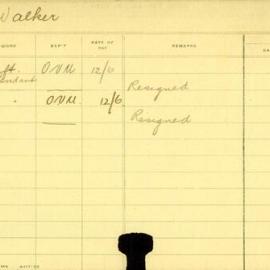 Walker
WORK DEP'T RATE OF PAY REMARKS
O.V.M. 12/6
Resigned
" O.V.M. 12/6
Resigned